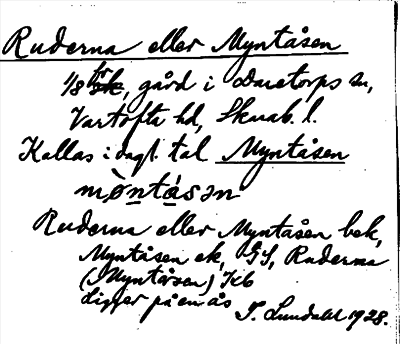 Ruderna eller Myntåsen
1/8 kr sk, gård i Daretorps sn,
Vartofta hd, Skarab. l.
Kallas i dagl. tal Myntåsen
mòntásan
Ruderna eller Myntåsen bek,
Myntåsen ek, GS, Ruderna
(Myntåsen) Jtb
Ligger på en ås
T. Lundahl 1928.